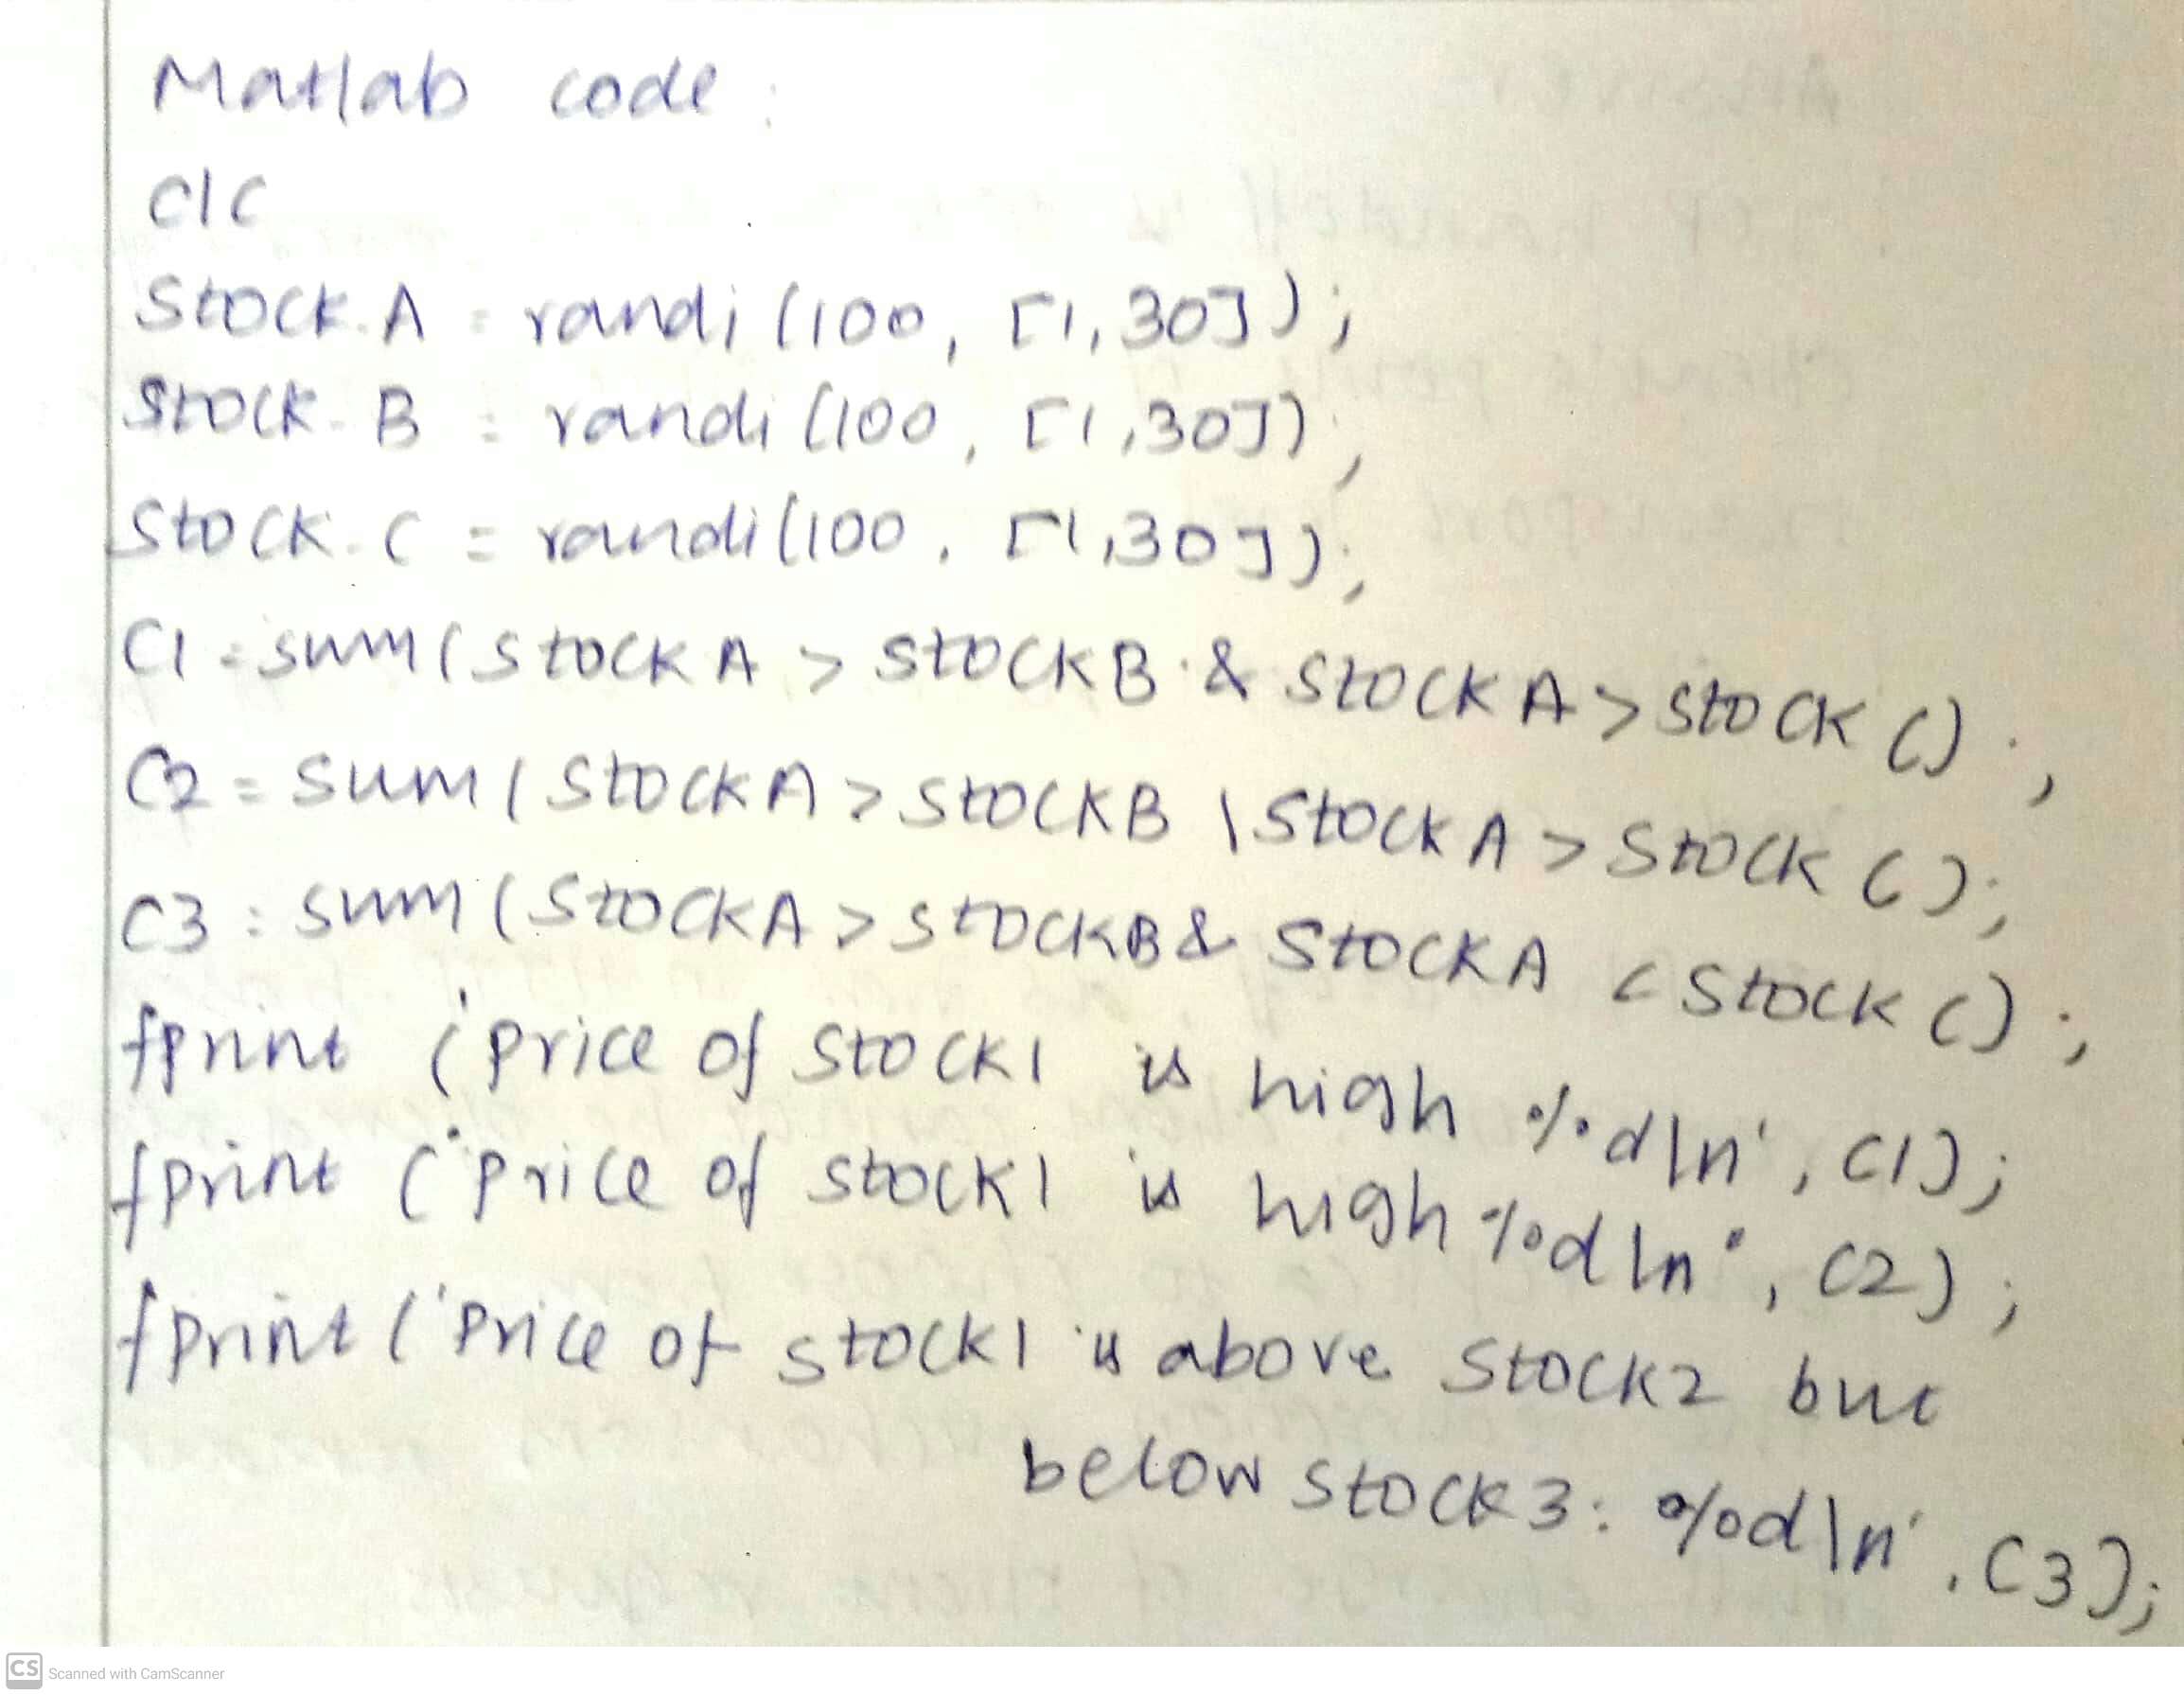 Matlab code:
clc
Stock.A = randi(100, [1,30]);
Stock.B = randi(100, [1,30]);
Stock.C = randi(100, [1,30]);
C1 = sum(StockA > StockB & StockA > StockC);
C2 = sum(StockA > StockB | StockA > StockC);
C3 = sum(StockA > StockB & StockA < StockC);
fprint ('price of stock1 is high %d\n', C1);
fprint ('price of stock1 is high %d\n', C2);
fprint ('Price of stock1 is above stock2 but
below stock3: %d\n', C3);
CS Scanned with CamScanner